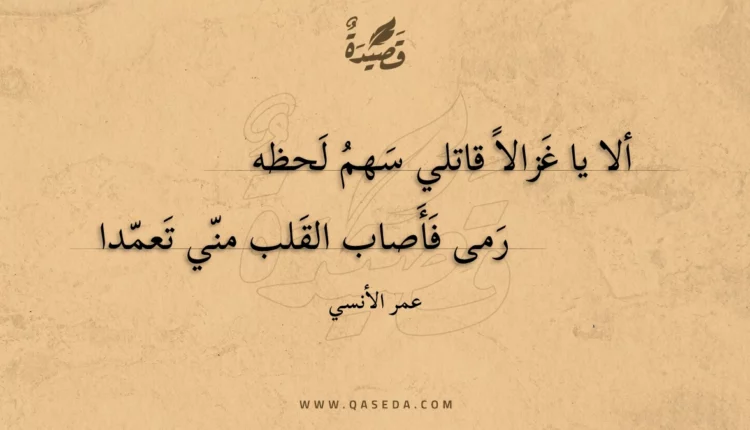 قَصِيْدَةٌ
ألا يا غَزالاً قاتلي سَهمُ لَحظه
رَمى فَأَصاب القَلب منّي تَعمّدا
عمر الأنسي
WWW.QASEDA.COM